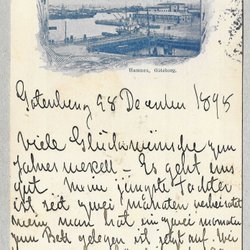 Hamnen, Göteborg.
Gotenburg 28 December 1898
Viele Glückwünsche zum
Jahreswexell – Es geht uns
gut, meine jüngste Tochter
ist seit zwei monaten verheiratet
mein man hat ein zwei monate
zum Bett gelegen ist jetzt auf. Wir